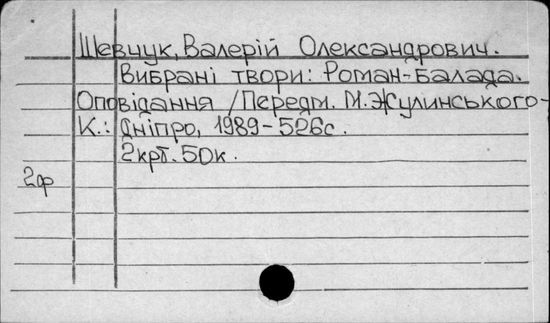 Шевчук, Валерій Олександрович.
Вибрані твори: Роман-балада.
Оповідання /Передм. М. Жулинського-
К.: Дніпро, 1989-526с.
2крб.50к.
2ф